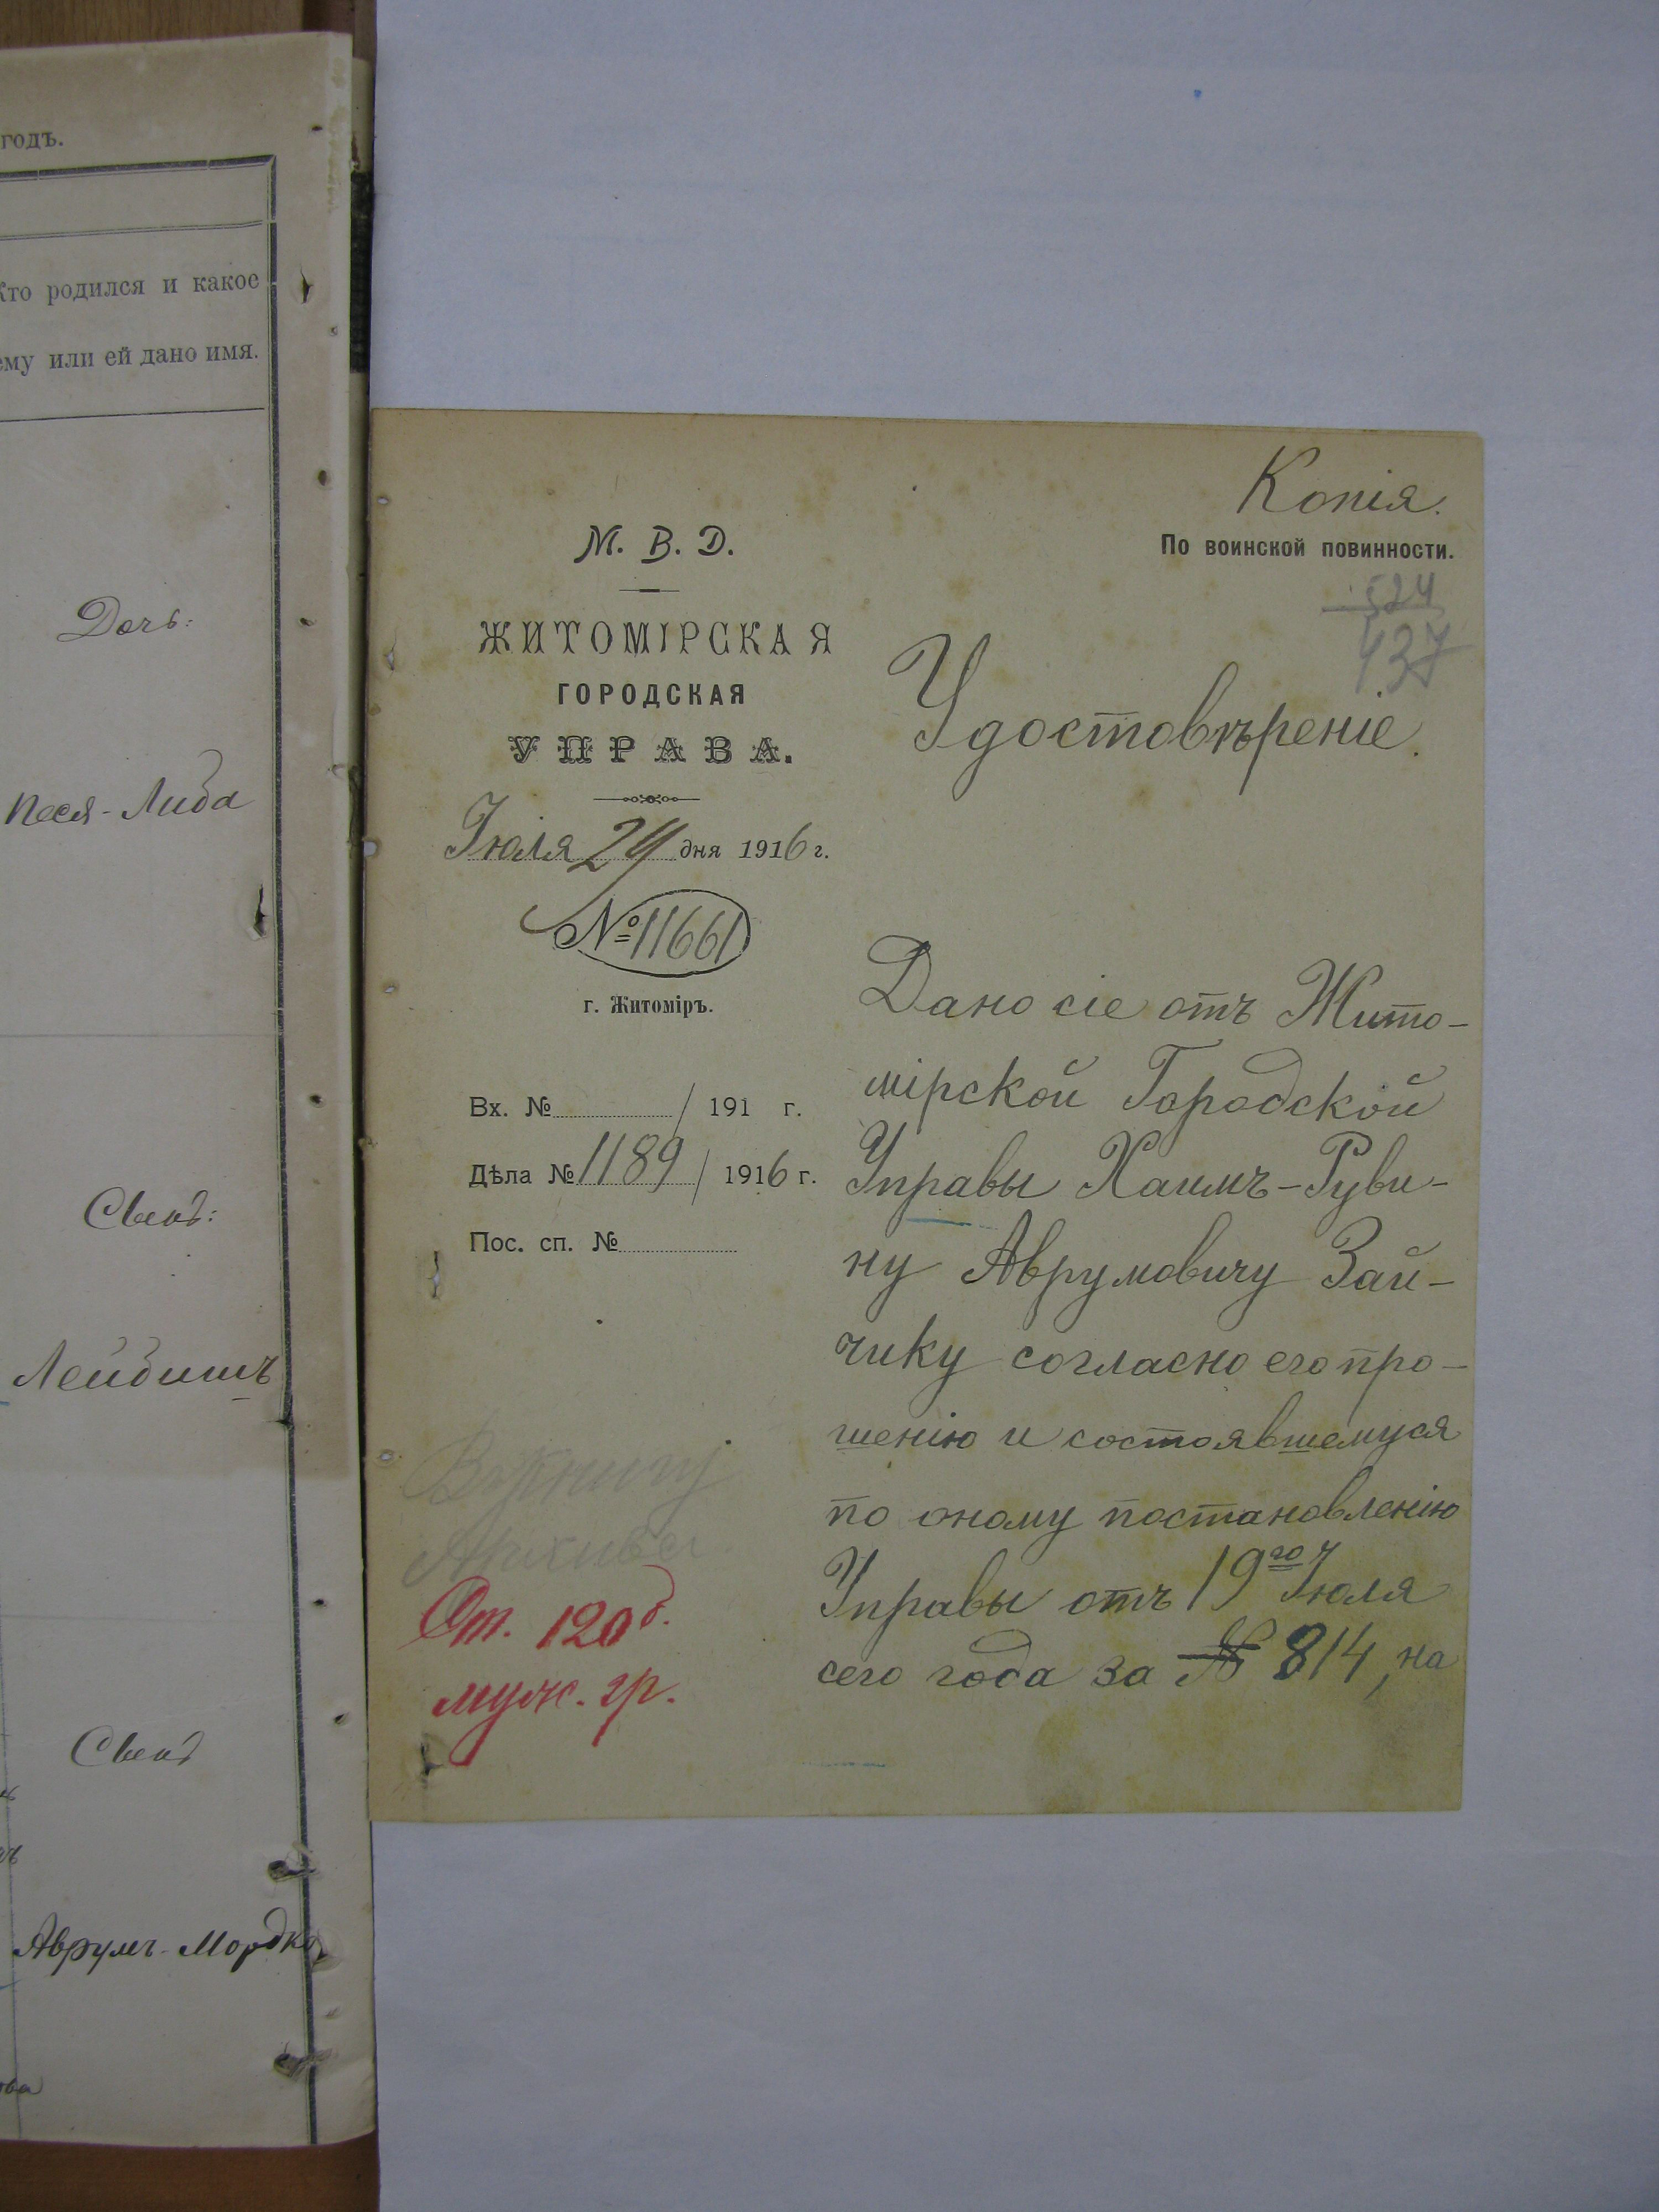 годъ.
Кто родился и какое
ему или ей дано имя.
Дочь:
Песя-Либа
Сынъ:
Лейбишъ
Сынъ
Аврумъ-Мордко
Копія.
По воинской повинности.
524
437
М. В. Д.
ЖИТОМІРСКАЯ
ГОРОДСКАЯ
УПРАВА.
Іюля 24 дня 1916 г.
№ 11661
г. Житоміръ.
Вх. № / 191 г.
Дѣла № 1189 / 1916 г.
Пос. сп. №
Въ книгу
Архива.
Ст. 120 б.
муж. гр.
Удостовѣреніе.
Дано сіе отъ Жито-
мірской Городской
Управы Хаимъ-Руви-
ну Аврумовичу Зай-
чику согласно его про-
шенію и состоявшемуся
по оному постановленію
Управы отъ 19го Іюля
сего года за № 814, на